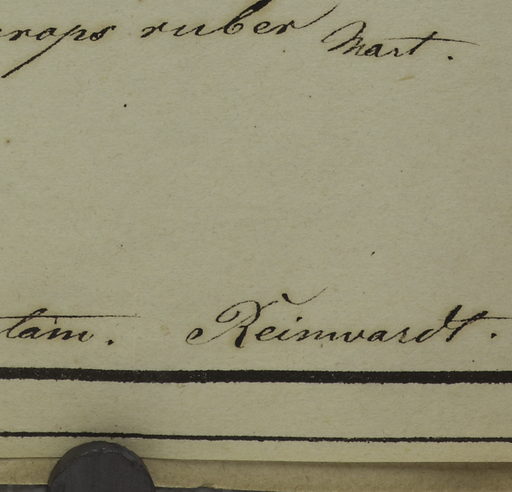 raps ruber Mart.
lam. Reinwardt.